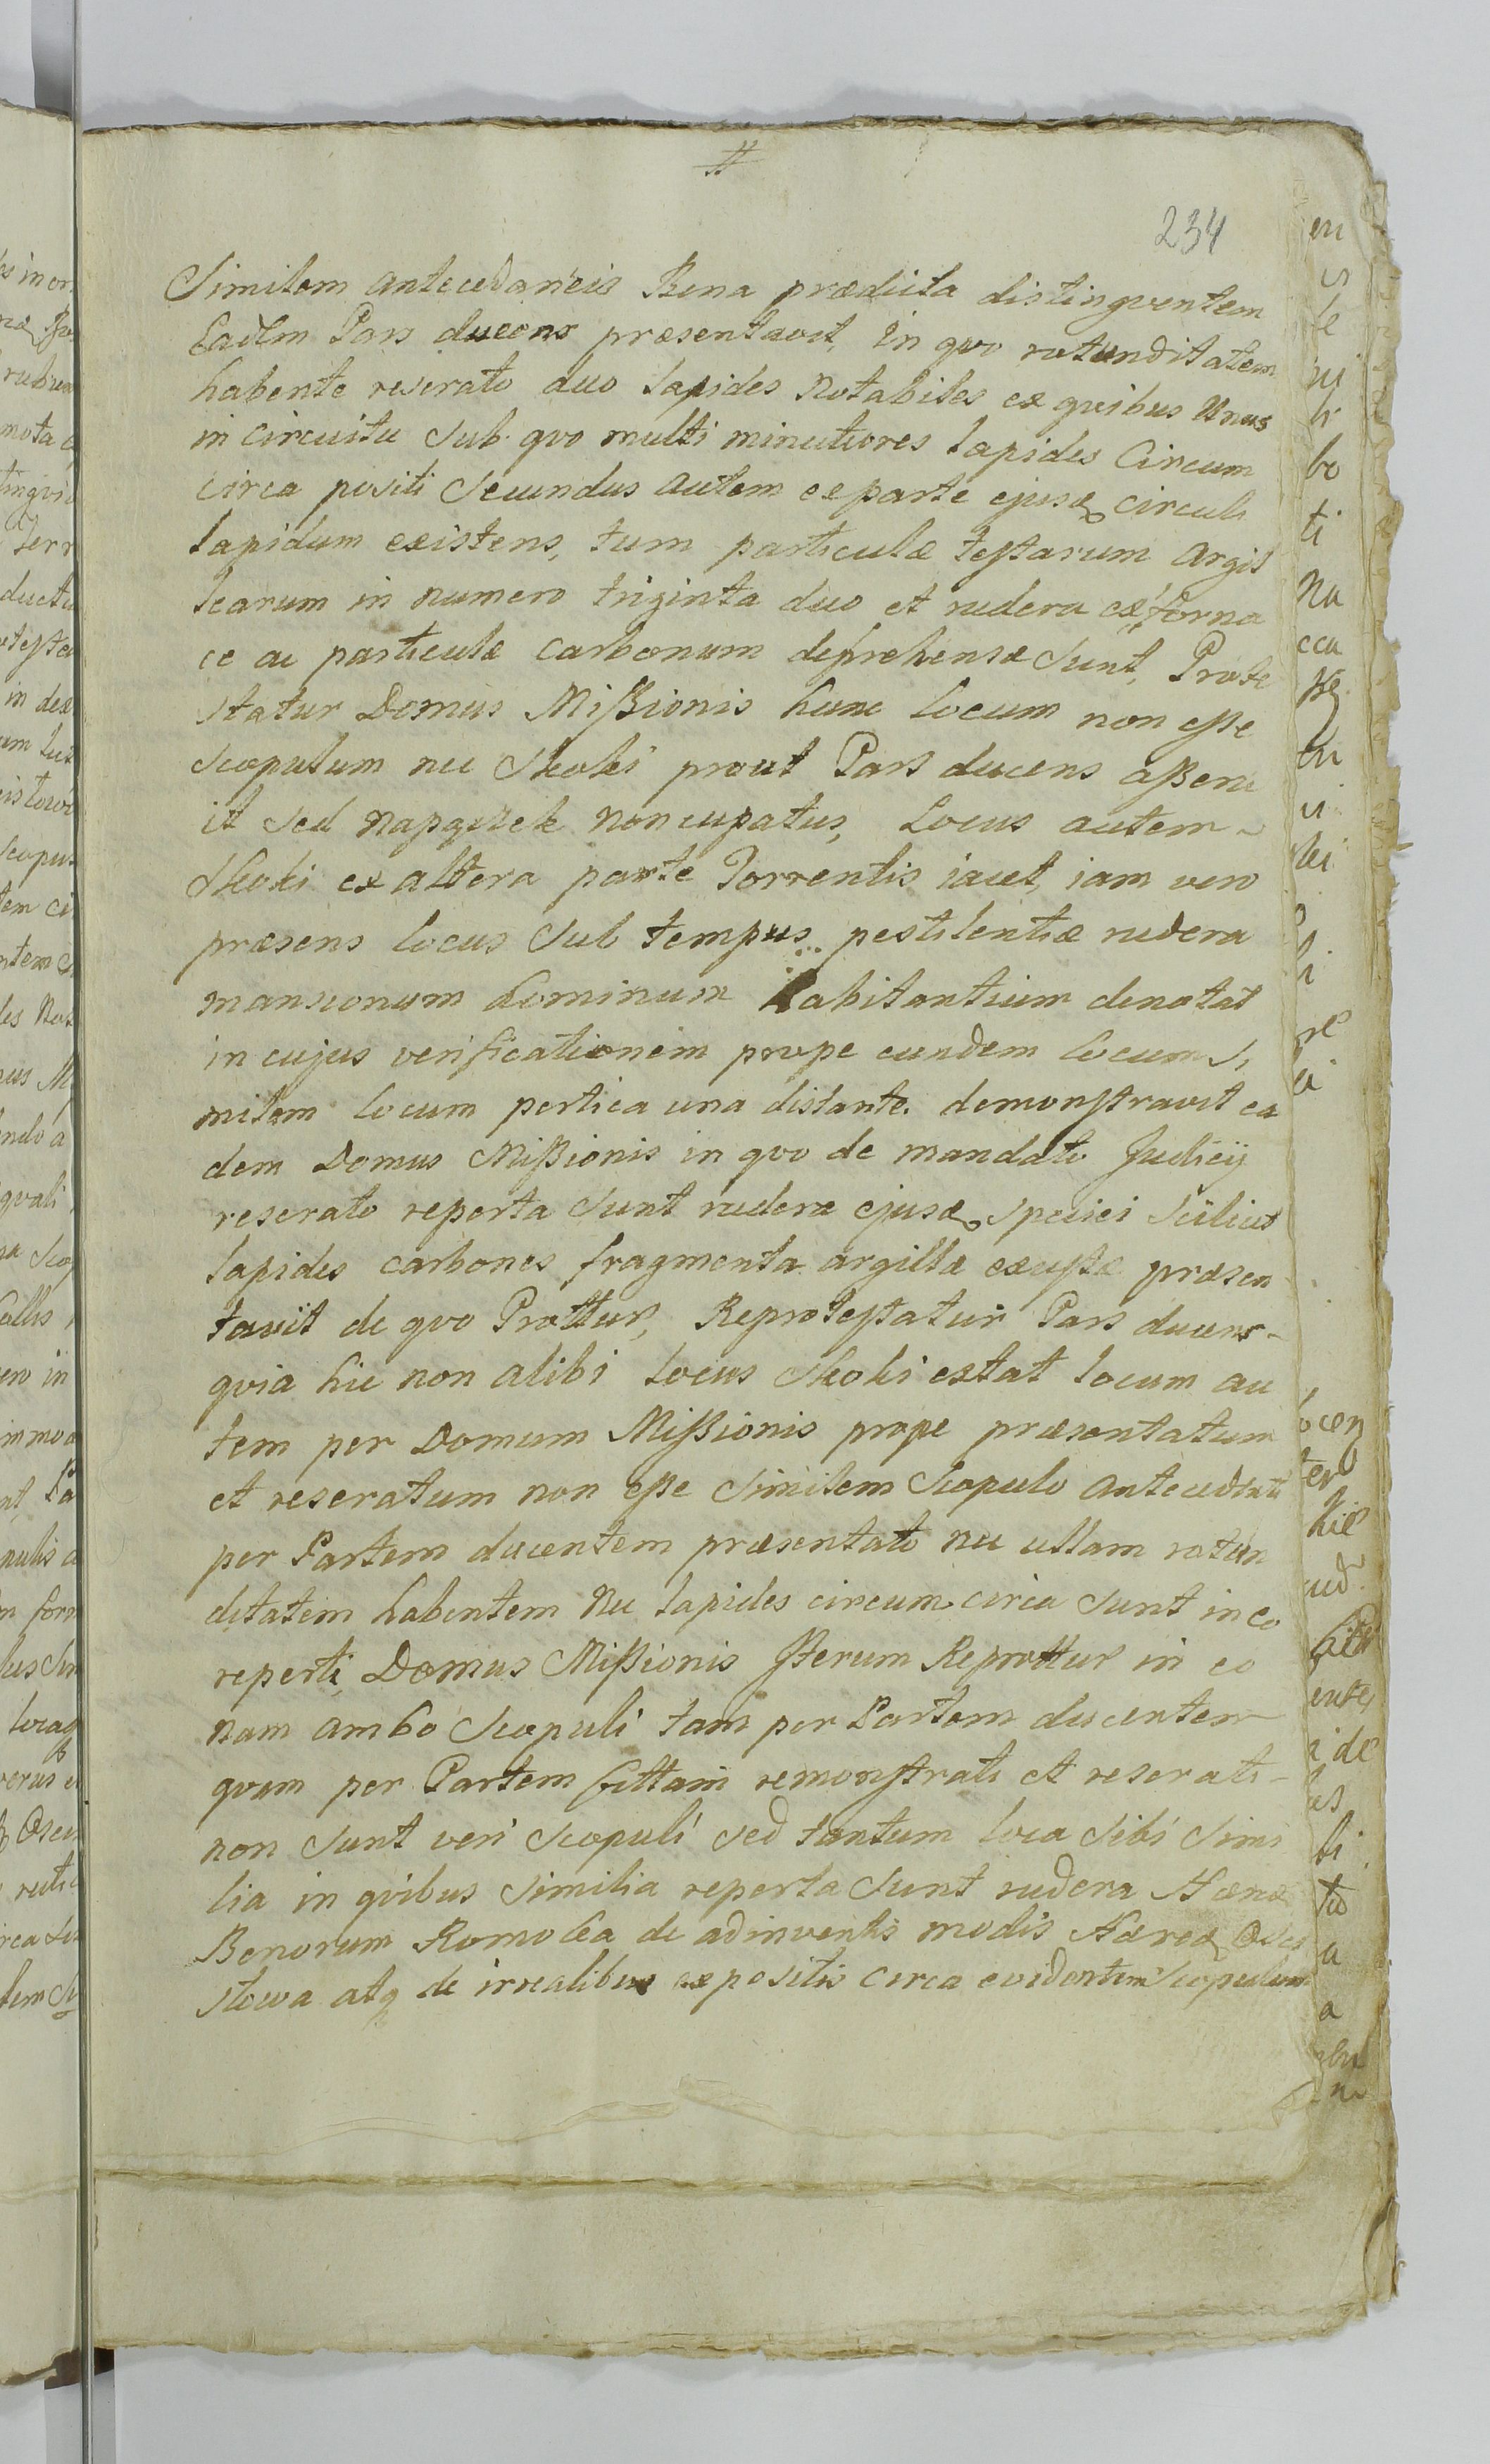 #
234
Similem antecedaneis Bina prædicta distingventem
Eadem Pars ducens præsentavit, in qvo rotunditatem
habente reserato duo lapides notabiles ex qvibus Unus
in circuitu Sub qvo multi minutiores lapides Circum
circa positi Secundus autem ex parte ejusd circuli
lapidum existens, tum particulæ testarum Argil
learum in numero triginta duo et rudera ex forna
ce ac particulæ Carbonum deprehensæ Sunt, Prote
statur Domus Missionis hunc locum non esse
Scopulum nec Skoki prout Pars ducens asseru
it Sed noncupatus, Locus autem
Skoki ex altera parte Torrentis iacet, iam vero
præsens locus Sub tempus pestilentiæ rudera
mansionum hominum habitantium denotat
in cujus verificationem prope eundem locum Si
milem locum pertica una distante demonstravit ea
dem Domus Missionis in qvo de mandato Judicij
reserato reperta Sunt rudera ejusd Speciei Scilicet
lapides carbones fragmenta argillæ exustæ præsen
tavit de qvo Prottur, Reprotestatur Pars ducens
qvia hic non alibi locus Skoki extat locum au
tem per Domum Missionis prope præsentatum
et reseratum non esse Similem Scopulo antecedenti
per Partem ducentem præsentato nec ullam rotun
ditatem habentem nec lapides circum circa Sunt in eo
reperti, Domus Missionis Iterum Reprottur in eo
nam ambo Scopuli tam per Partem ducentem
qvam per Partem Cittam remonstrati et reserati
non Sunt veri Scopuli Sed tantum loca Sibi Simi
lia in qvibus Similia reperta Sunt rudera Hæred
Bonorum Komolca de adinventis modis Hæred Osie
stowa atq de irrealibus expositis circa evidentem Scopulum